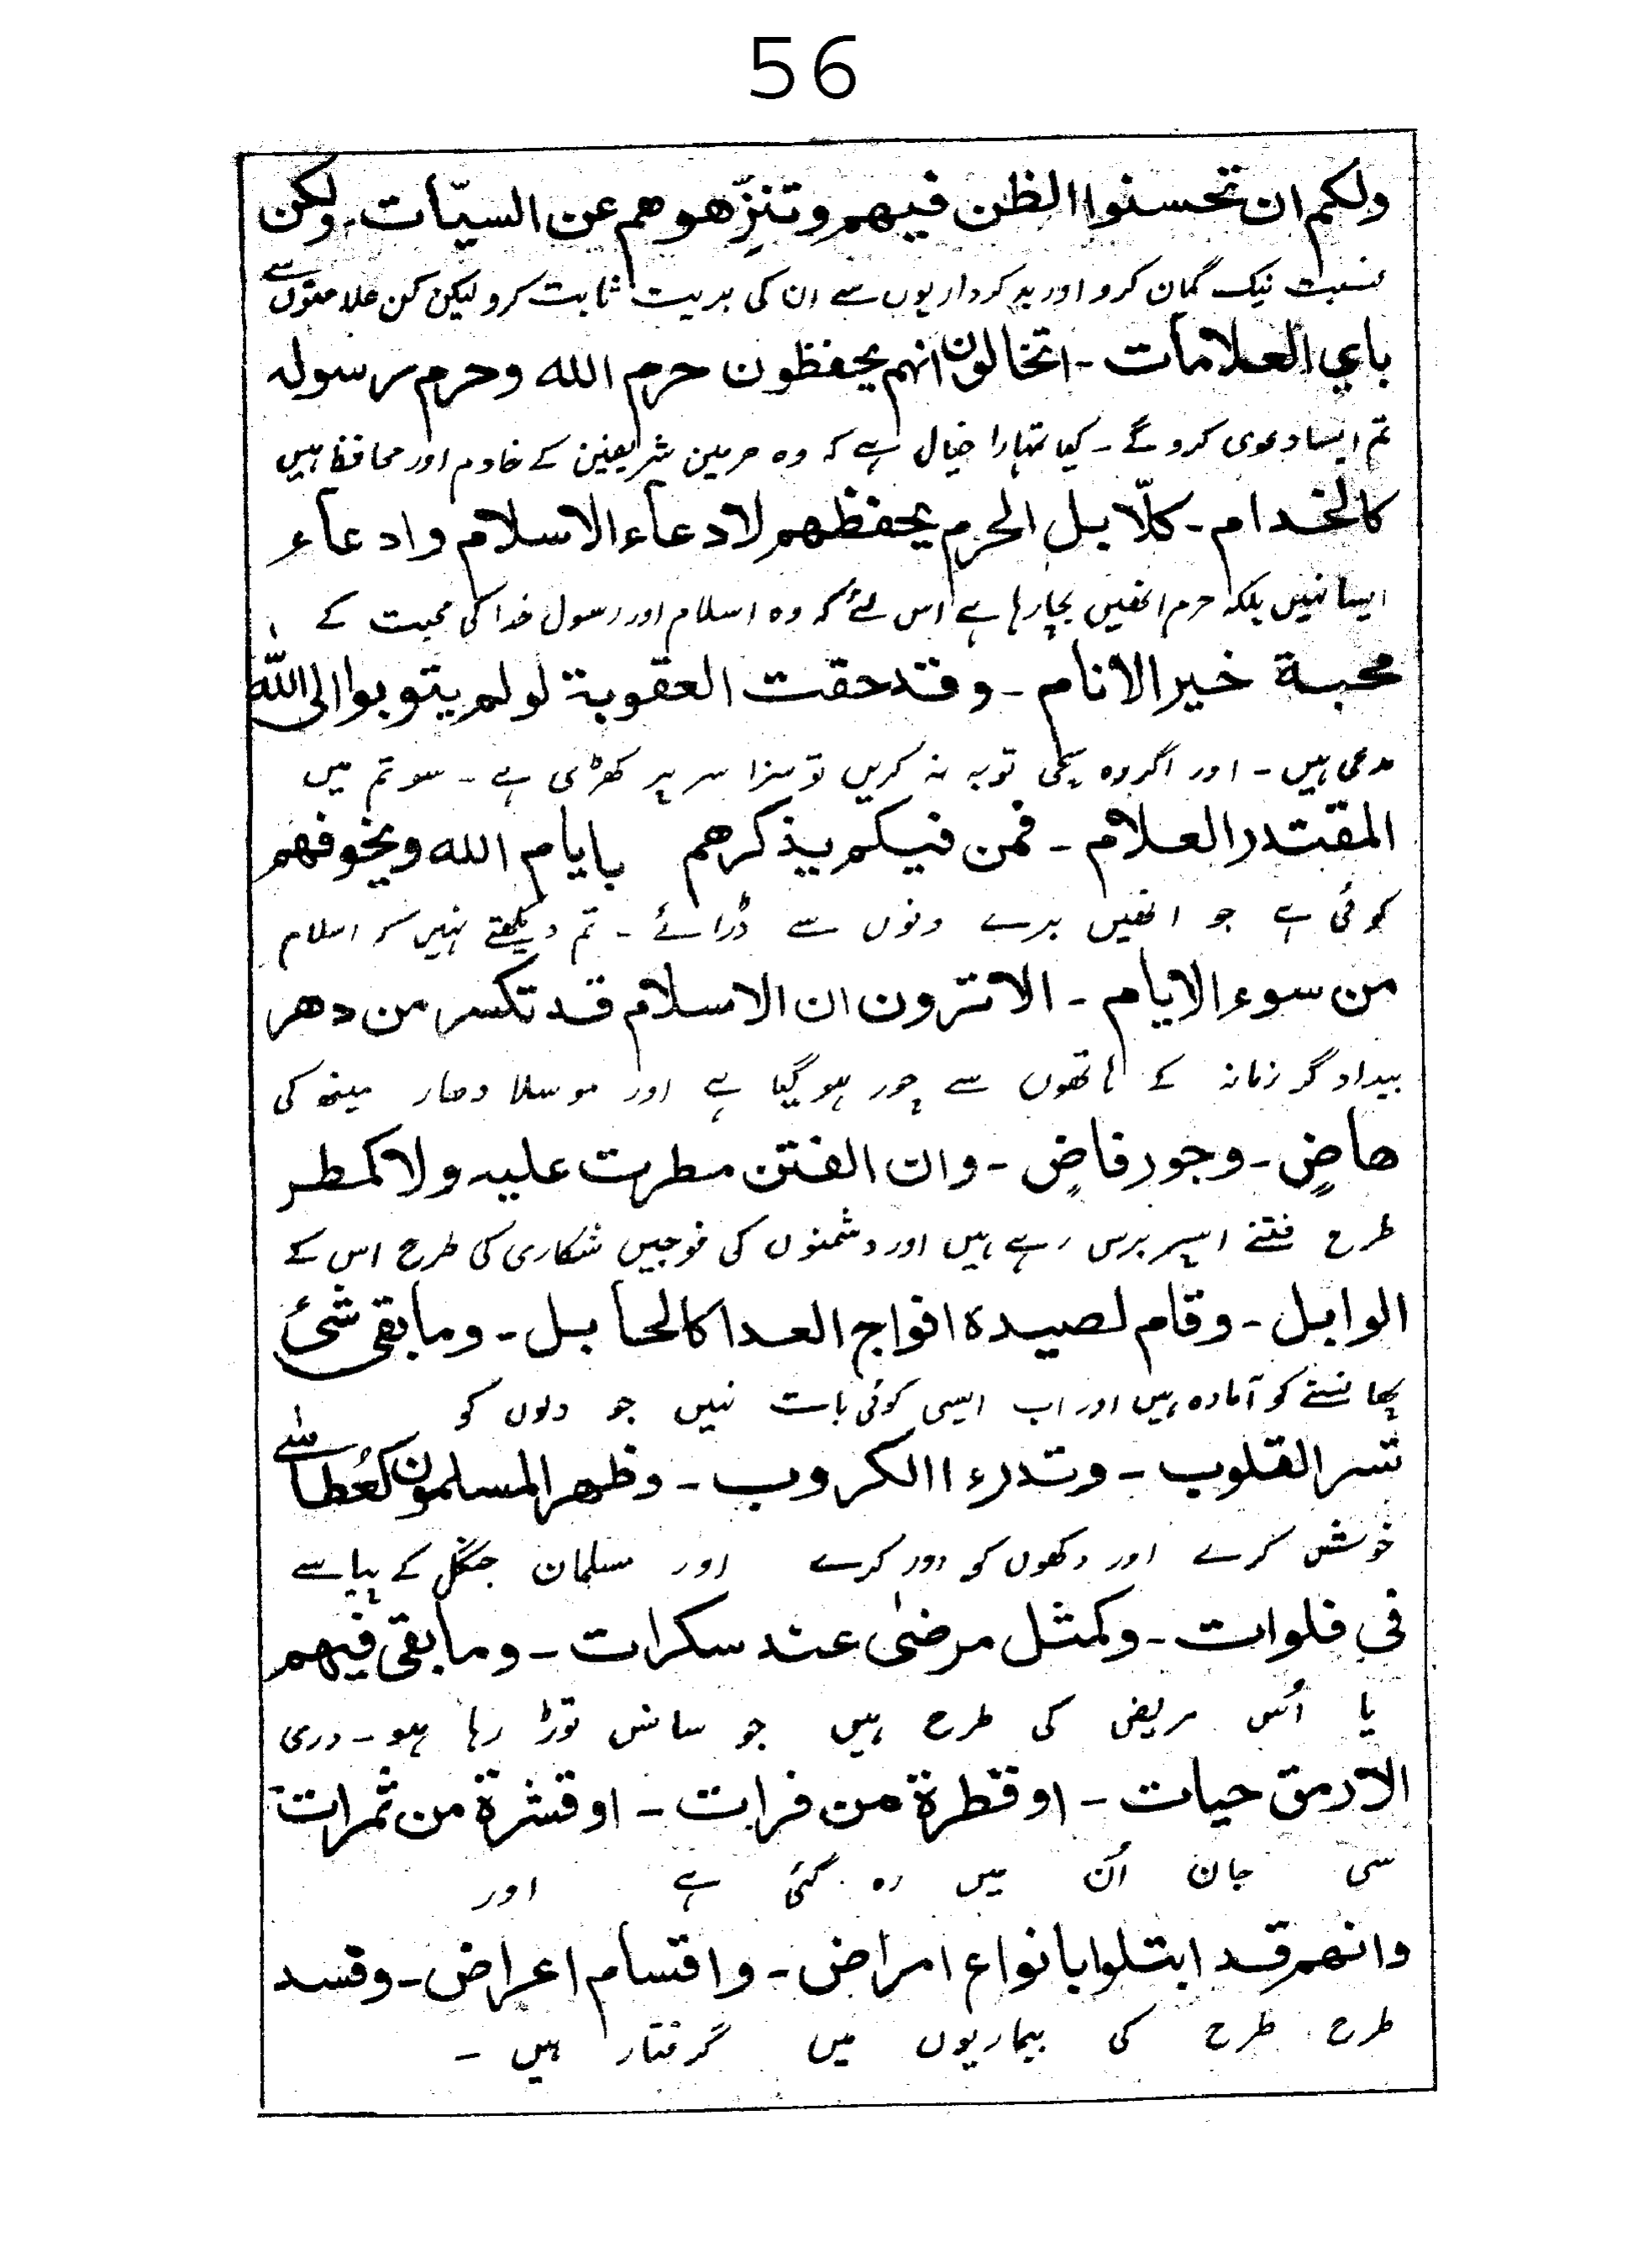 56
ولکم ان تحسنوا الظن فیھم وتنزّھوھم عن السیّاٰت۔ ولکن
نسبت نیک گمان کرو اور بد کرداریوں سے ان کی بریت ثابت کرو لیکن کن علامتوں سے
بای العلامات۔ اتخالون انھم یحفظون حرم اللہ وحرم رسولہ
تم ایسا دعوی کرو گے۔ کیا تمہارا خیال ہے کہ وہ حرمین شریفین کے خادم اور محافظ ہیں
کالخدام۔ کلّا بل الحرم یحفظھم لادعاء الاسلام وادعاء
ایسا نہیں بلکہ حرم انھیں بچا رہا ہے اس لئے کہ وہ اسلام اور رسول خدا کی محبت کے
محبة خیر الانام۔ وقد حقت العقوبة لو لم یتوبوا الی اللہ
مدعی ہیں۔ اور اگر وہ سچی توبہ نہ کریں تو سزا سر پر کھڑی ہے۔ سو تم میں
المقتدر العلام۔ فمن فیکم یذکرھم بایام اللہ ویخوفھم
کوئی ہے جو انھیں برے دنوں سے ڈرائے۔ تم دیکھتے نہیں کہ اسلام
من سوء الایام۔ الا ترون ان الاسلام قد تکسر من دھر
بیداد گر زمانہ کے ہاتھوں سے چور ہو گیا ہے اور موسلا دھار مینھ کی
ھاضٍ۔ وجور فاضٍ۔ وان الفتن مطرت علیہ ولا کمطر
طرح فتنے اسپر برس رہے ہیں اور دشمنوں کی فوجیں شکاری کی طرح اس کے
الوابل۔ وقام لصیدہ افواج العدا کالحابل۔ وما بقی شئ
پھانسنے کو آمادہ ہیں اور اب ایسی کوئی بات نہیں جو دلوں کو
تسر القلوب۔ وتدرء الکروب۔ وظھر المسلمون کعُطاشٰی
خوش کرے اور دکھوں کو دور کرے اور مسلمان جنگل کے پیاسے
فی فلوات۔ وکمثل مرضٰی عند سکرات۔ وما بقی فیھم
یا اُس مریض کی طرح ہیں جو سانس توڑ رہا ہو۔ ذری
الا رمق حیات۔ او قطرة من فرات۔ او قشرة من ثمرات۔
سی جان اُن میں رہ گئی ہے اور
وانھم قد ابتلوا بانواع امراض۔ واقسام اعراض۔ وفسد
طرح طرح کی بیماریوں میں گرفتار ہیں۔